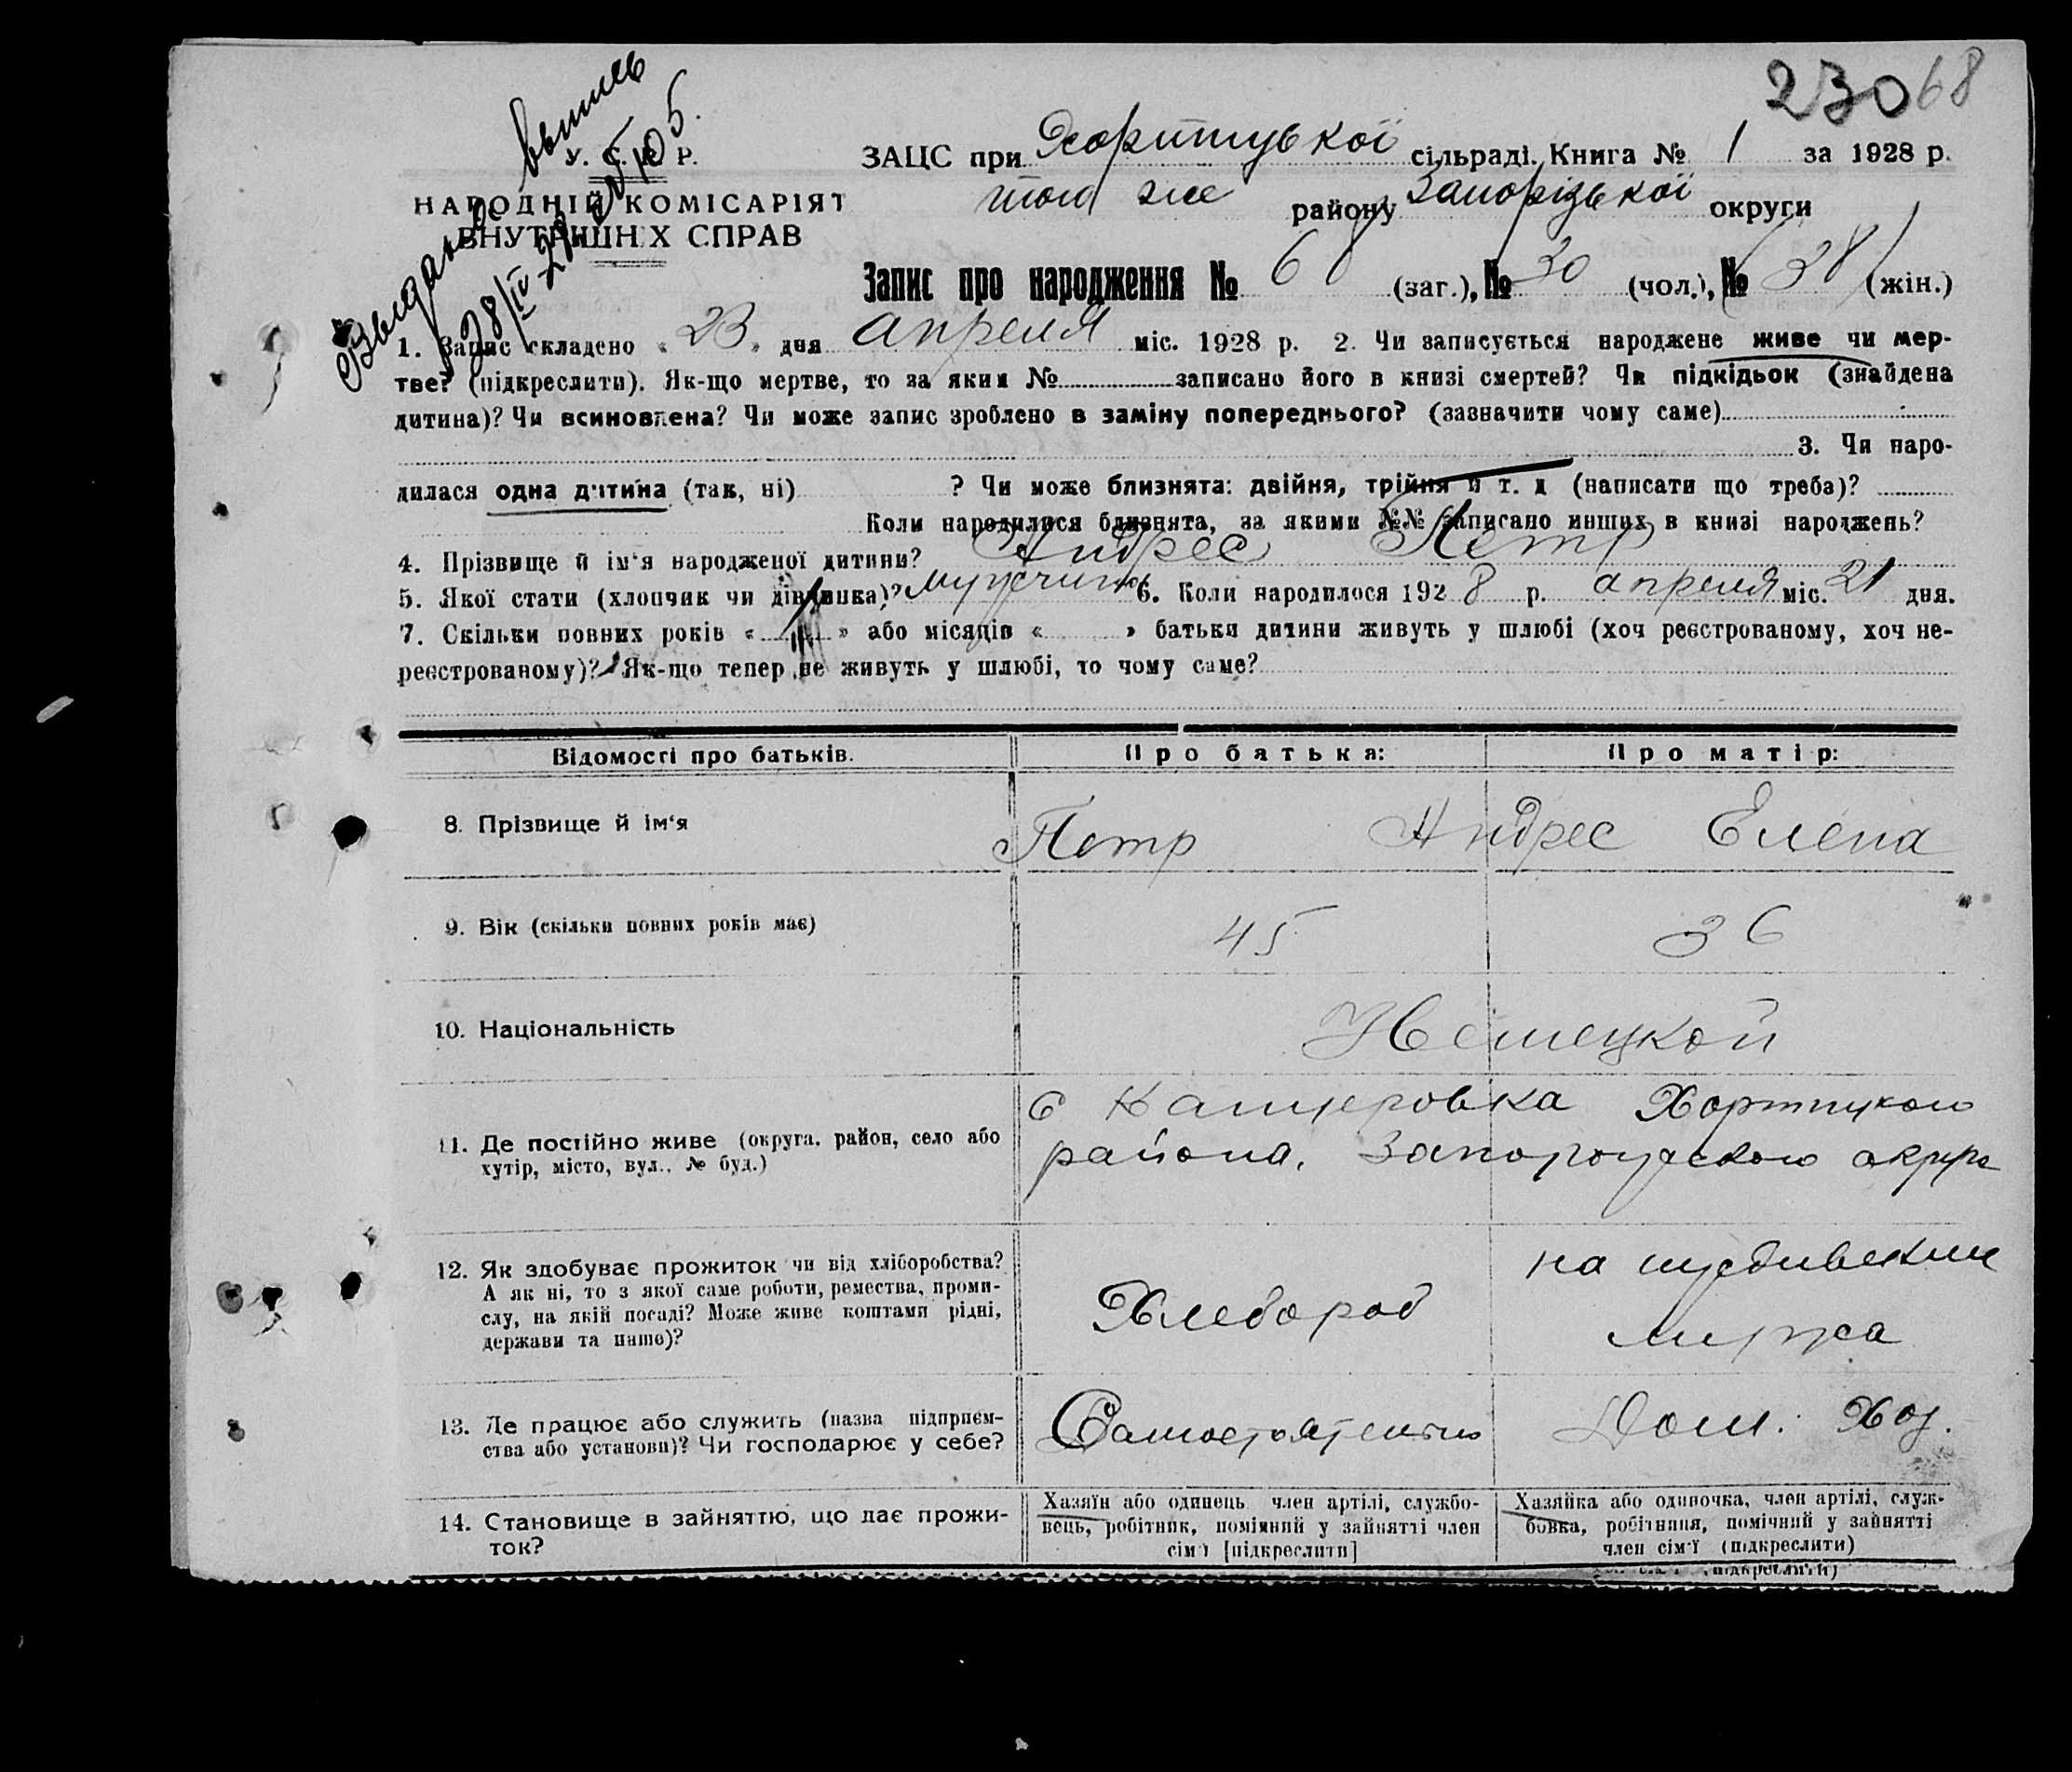 230 68
Выдана выпись
28/IV 28 № 5105.
У. С. Р. Р.
НАРОДНІЙ КОМІСАРІЯТ
ВНУТРІШНІХ СПРАВ
ЗАЦС при Хортицької сільраді. Книга № 1 за 1928 р.
того же району Запорізької округи
Запис про народження № 68 (заг.), № 30 (чол.), № (38) (жін.)
1. Запис складено « 23 » дня апреля міс. 1928 р. 2. Чи записується народжене живе чи мер-
тве? (підкреслити). Як-що мертве, то за яким № записано його в книзі смертей? Чи підкідьок (знайдена
дитина)? Чи всиновлена? Чи може запис зроблено в заміну попереднього? (зазначити чому саме)
3. Чи наро-
дилася одна дитина (так, ні) ? Чи може близнята: двійня, трійня й т. д (написати що треба)?
Коли народилися близнята, за якими №№ записано инших в книзі народжень?
4. Прізвище й ім'я народженої дитини? Андрес Петр
5. Якої стати (хлопчик чи дівчинка)? мужчина 6. Коли народилося 1928 р. апреля міс. 21 дня.
7. Скільки повних років « » або місяців « » батьки дитини живуть у шлюбі (хоч реєстрованому, хоч не-
реєстрованому)? Як-що тепер не живуть у шлюбі, то чому саме?
Відомості про батьків. Про батька: Про матір:
8. Прізвище й ім'я Петр Андрес Елена
9. Вік (скільки повних років має) 45 36
10. Національність Немецкой
11. Де постійно живе (округа. район, село або
хутір, місто, вул., № буд.)
с Канцеровка Хортицкого
района, Запорожского округа
12. Як здобуває прожиток чи від хліборобства?
А як ні, то з якої саме роботи, ремества, проми-
слу, на якій посаді? Може живе коштами рідні,
держави та инше)?
Хлебороб
на иждивении
мужа
13. Де працює або служить (назва підприєм-
ства або установи)? Чи господарює у себе?
Самостоятельно
Дом. Хоз.
14. Становище в зайняттю, що дає прожи-
ток?
Хазяїн або одинець член артілі, службо-
вець, робітник, помічний у зайнятті член
сім'ї [підкреслити]
Хазяйка або одиночка, член артілі, служ-
бовка, робітниця, помічний у зайнятті
член сім'ї (підкреслити)
підкреслити)